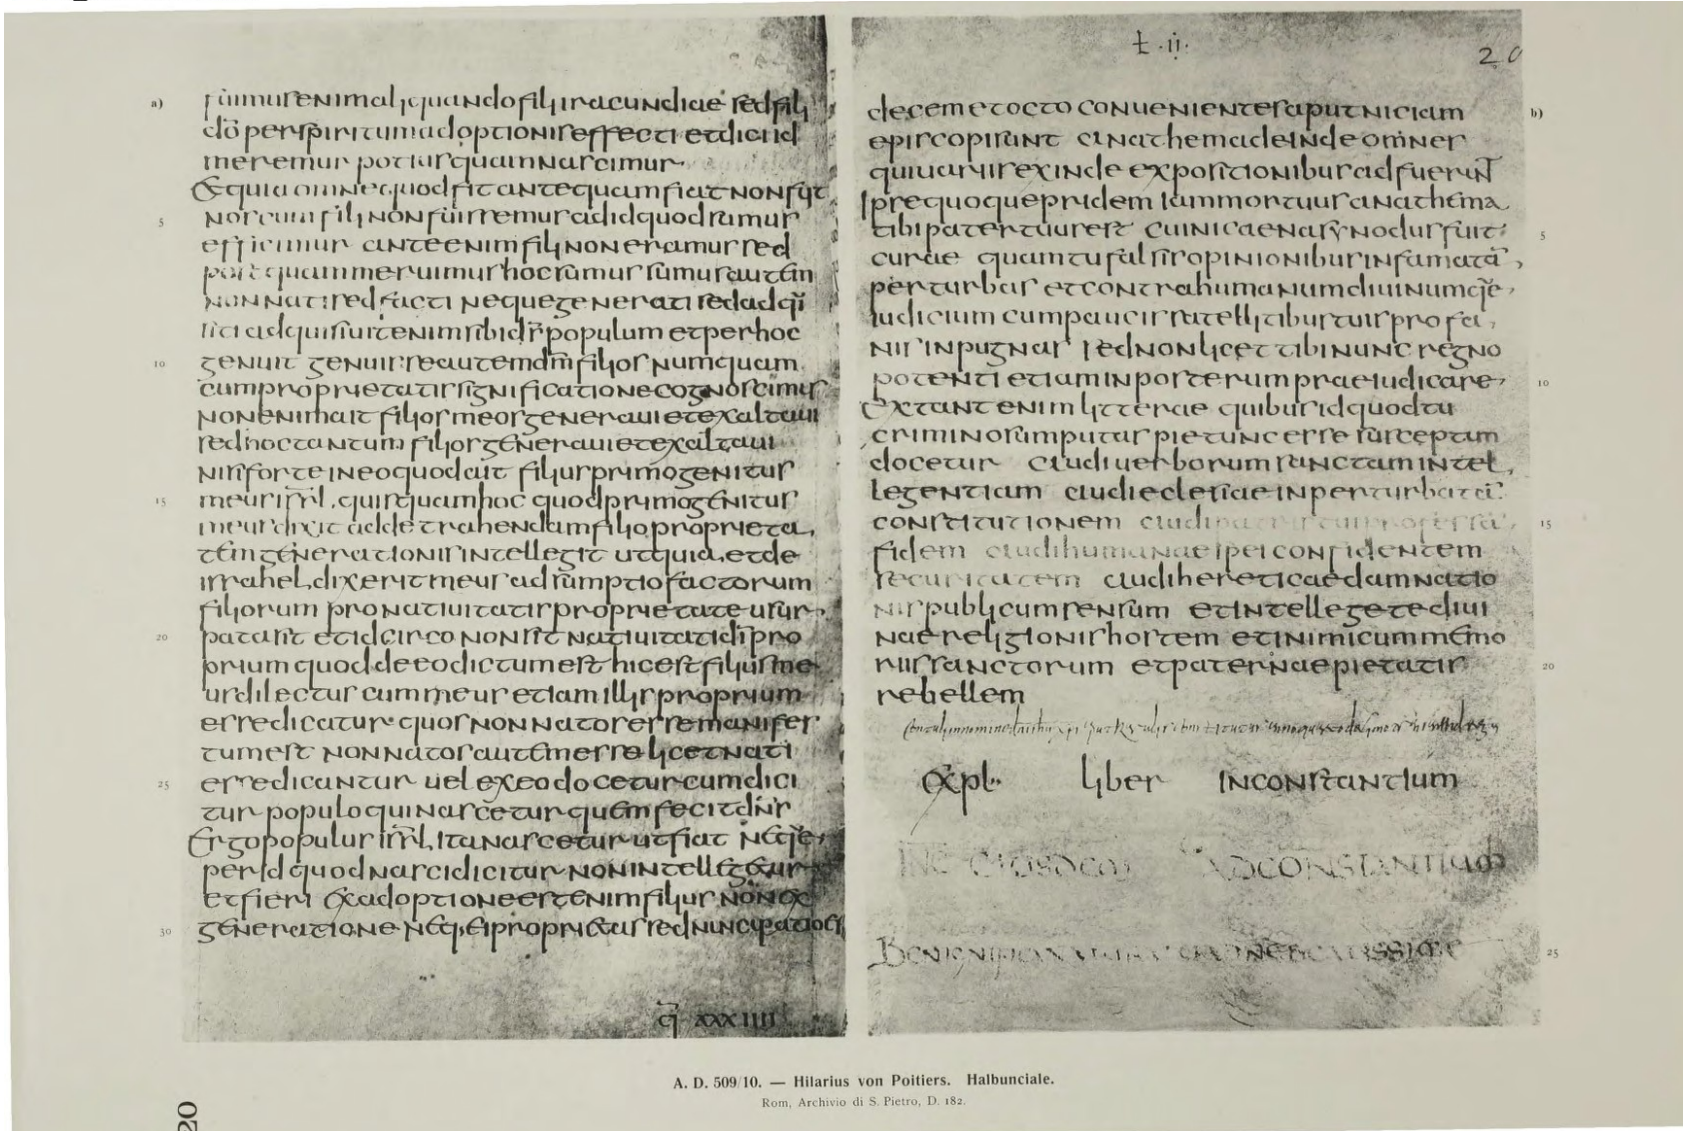 t·ii·
20
a)
fuimus enim aliquando filii iracundiae sed filii
dō per spiritum adoptionis effecti et dici id
meremur potius quam nascimur
Et quia omne quod fit antequam fiat non fuit
5 nos cum fili non fuissemus ad id quod sumus
efficimur ante enim fili non eramus sed
postquam meruimus hoc sumus sumus autem
non nati sed facti neque generati sed adqui
siti adquisiuit enim sibi ds̄ populum et per hoc
10 genuit genuisse autem dn̄m filios numquam
cum proprietatis significatione cognoscimus
non enim ait filios meos generaui et exaltaui
sed hoc tantum filios generaui et exaltaui
nisi forte in eo quod ait filius primogenitus
15 meus isrl̄. quisquam hoc quod primogenitus
meus dixit ad detrahendam filio proprieta
tem generationis intellegit ut quia et de
israhel dixerit meus adsumptio factorum
filiorum pro natiuitatis proprietate usur
20 pata sit et idcirco non sit natiuitati dī pro
prium quod de eo dictum est hic est filius me
us dilectus cum meus etiam illis proprium
esse dicatur quos non natos esse manifes
tum est non natos autem esse licet nati
25 esse dicantur uel ex eo docetur cum dici
tur populo qui nascetur quem fecit dn̄s
Ergo populus isrl̄ ita nascetur ut fiat neq̄e
per id quod nasci dicitur non intellegetur
et fieri ex adoptione est enim filius non ex
30 generatione neq. ei proprietas sed nuncupatio est
q̄ xxxiiii
b)
decem et octo conuenientes aput niciam
episcopi sunt anathema deinde omnes
qui uariis exinde expositionibus adfuerunt
Ipse quoque pridem iam mortuus anathema
5 tibi pater tuus est cui nicaena synodus fuit
curae quam tu falsis opinionibus infamatā
perturbas et contra humanum diuinumq̄e
iudicium cum paucis satellitibus tuis profa
nis inpugnas sed non licet tibi nunc regno
10 potenti etiam in posterum praeiudicare
Extant enim litterae quibus id quod tu
criminosum putas pie tunc esse susceptum
docetur audi uerborum sanctam intel
legentiam audi eclesiae inperturbatā
15 constitutionem audi patris tui professā
fidem audi humanae spei confidentem
securitatem audi hereticae damnatio
nis publicum sensum et intellege te diui
nae religionis hostem et inimicum memo
20 riis sanctorum et paternae pietatis
rebellem
Expl. liber in constantium
INC EIUSDEM AD CONSTANTIUM
25
A. D. 509/10. — Hilarius von Poitiers. Halbunciale.
Rom, Archivio di S. Pietro, D. 182.
20